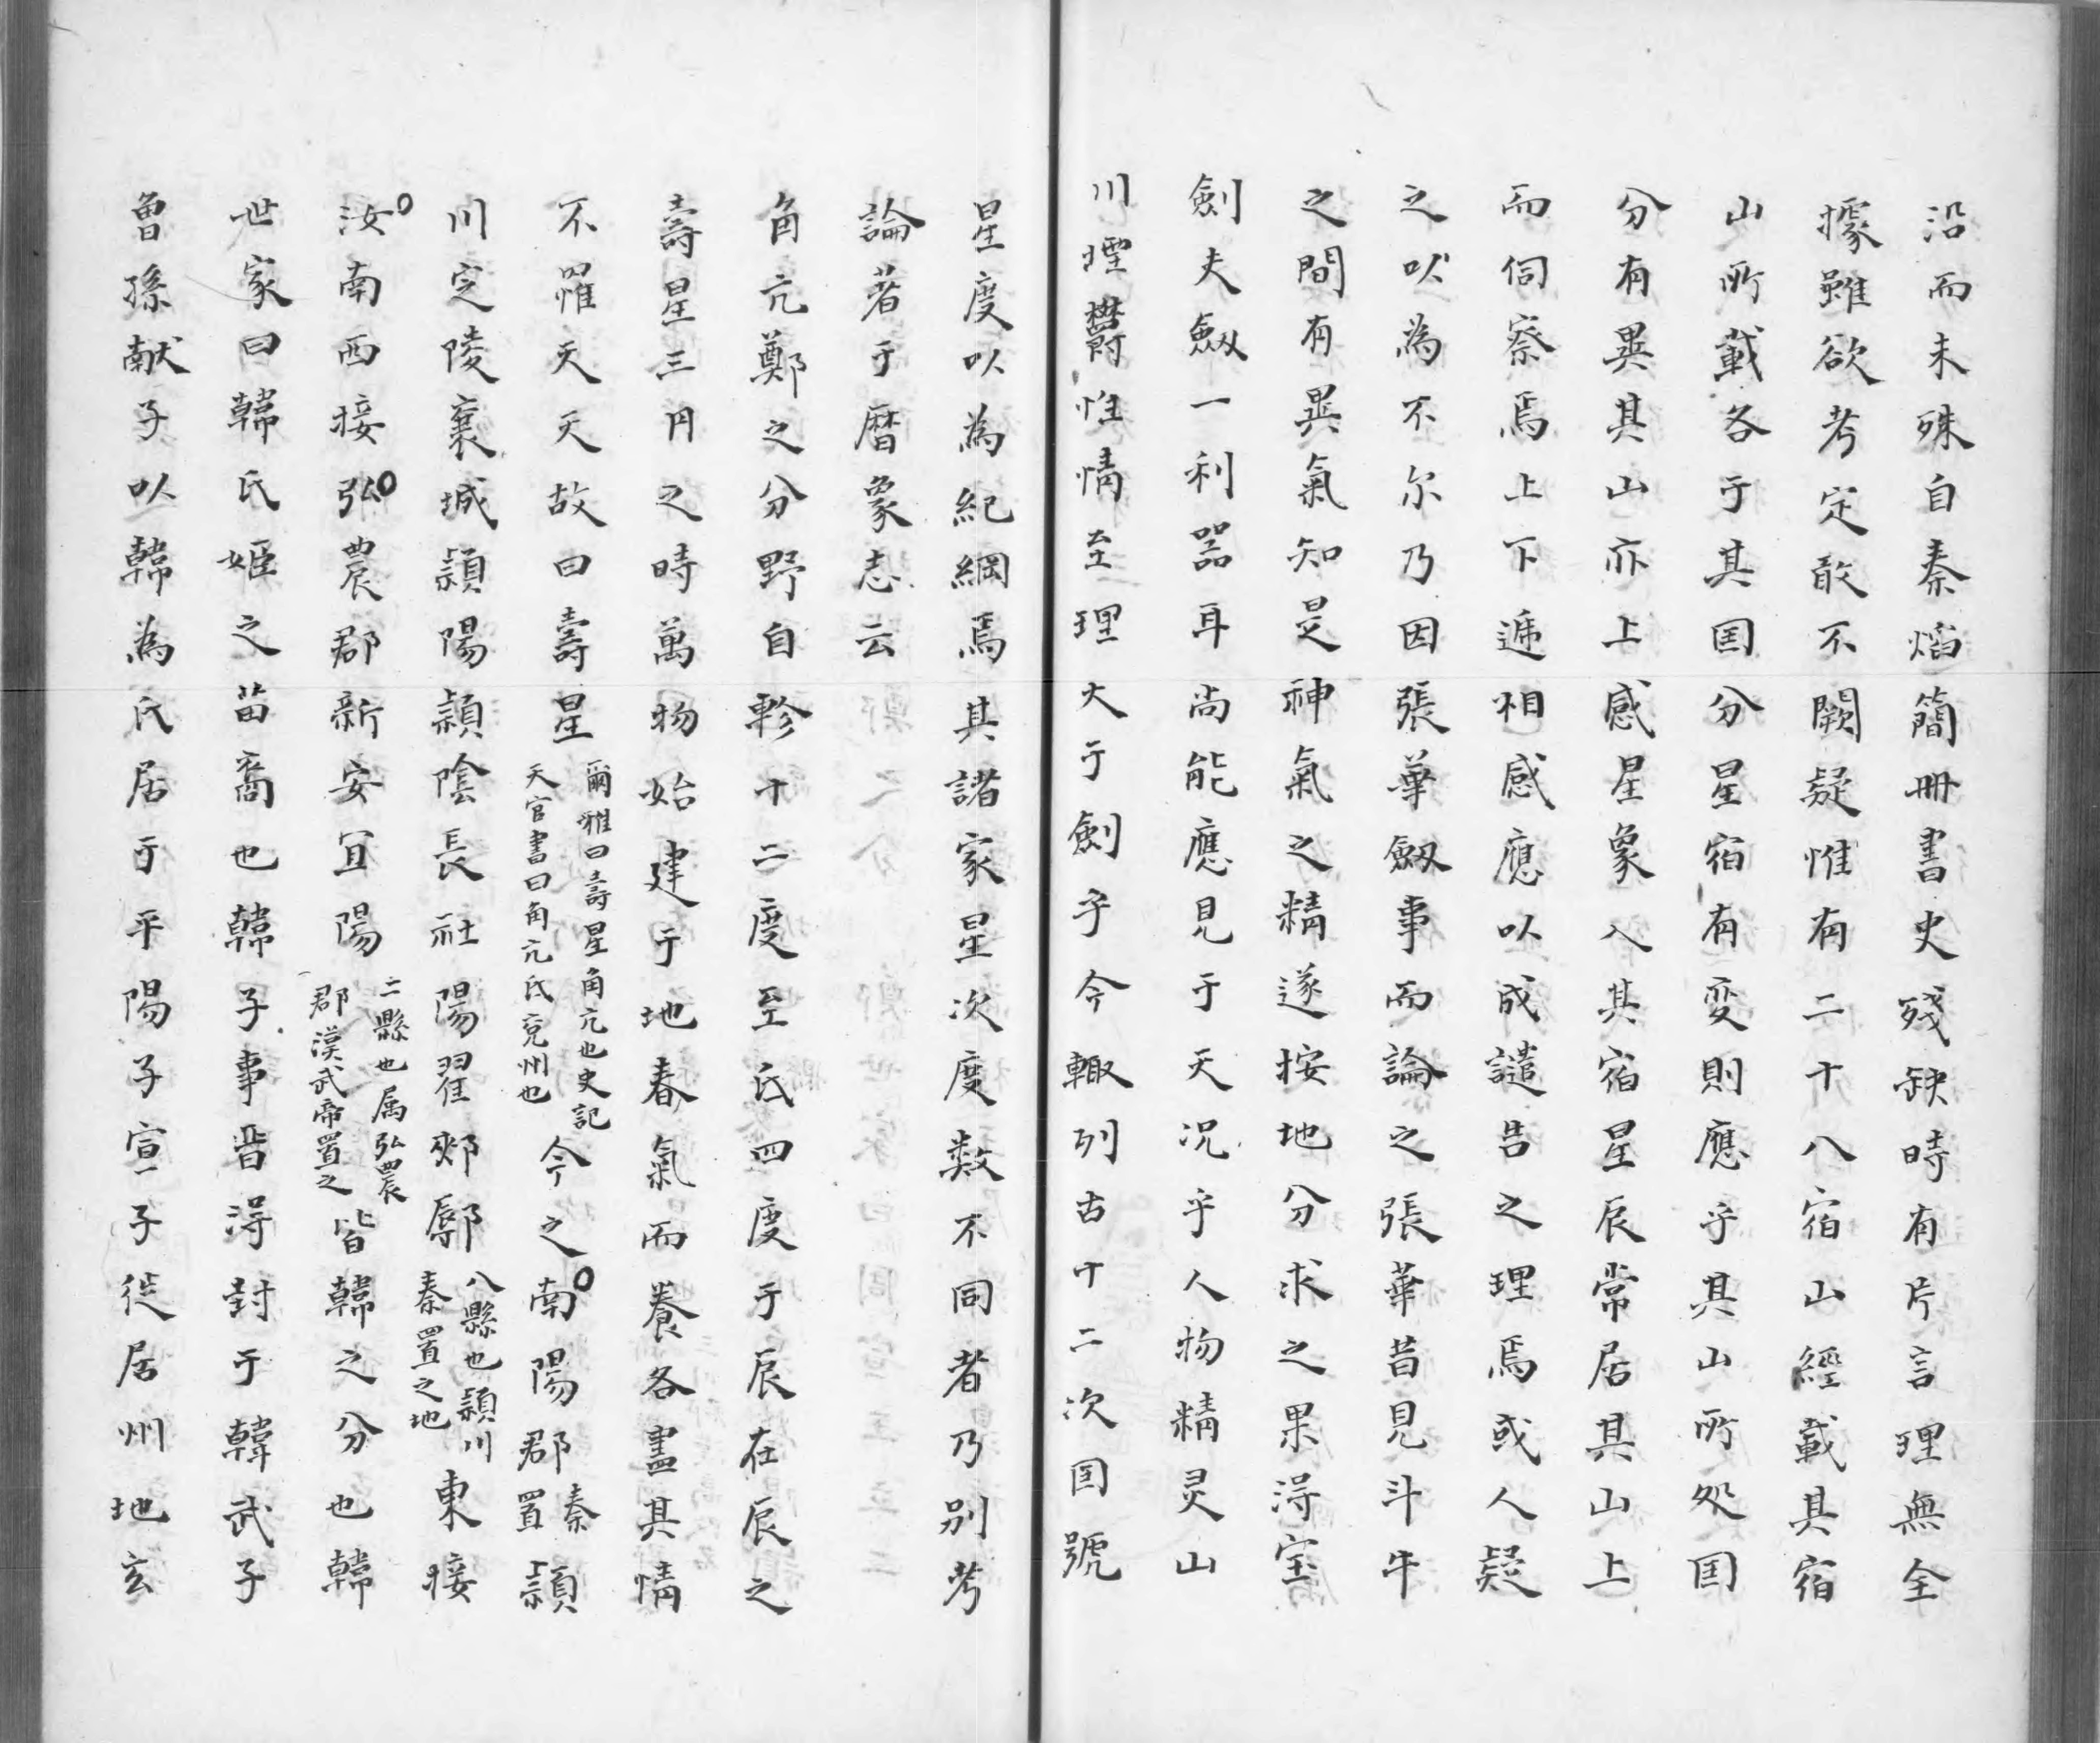 沿而未殊自秦熖簡冊書史殘缺時有片言理無全
據雖欲考定敢不闕疑惟有二十八宿山經載其宿
山所載各于其国分星宿有变則應乎其山所处国
分有異其山亦上感星象入其宿星辰常居其山上
而伺察焉上下逓相感應以成譴告之理焉或人疑
之以為不尔乃因張華劔事而論之張華昔見斗牛
之間有異氣知是神氣之精遂按地分求之果得宝
劍夫劔一利器耳尚能應見于天况乎人物精灵山
川堙欝惟情至理大于劍乎今輙列古十二次国號
星度以為紀綱焉其諸家星次度数不同者乃别考
論著于暦象志云
角亢鄭之分野自軫十二度至氐四度于辰在辰之
壽星三月之時萬物始建于地春氣而養各盡其情
不罹天夭故曰壽星爾雅曰壽星角亢也史記天官書曰角亢氐兗州也今之南陽郡秦置潁
川定陵襄城潁陽潁陰長社陽翟郟鄏八縣也潁川秦置之地東接
汝南西接弘農郡新安宜陽二縣也属弘農郡漢武帝置之皆韓之分也韓
世家曰韓氏姬之苗裔也韓子事晋得封于韓武子
曾孫献子以韓為氏居于平陽子宣子徙居州地玄